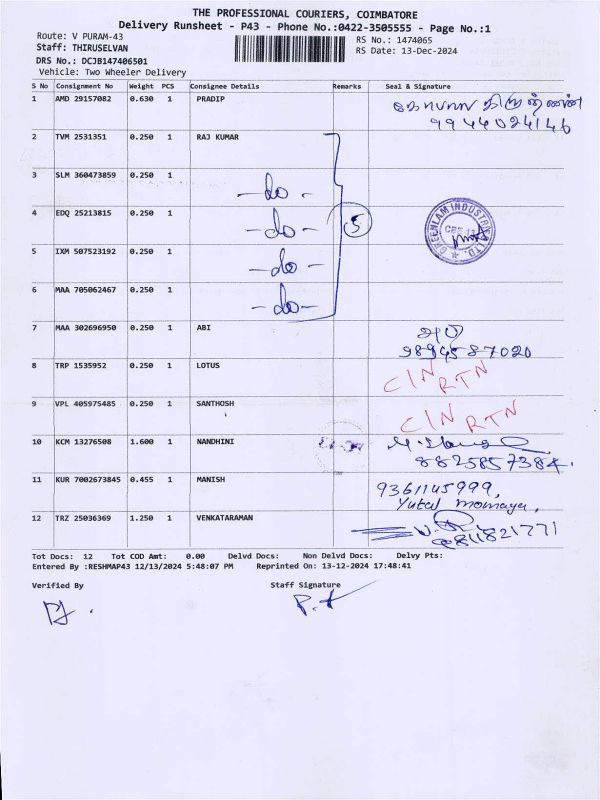 THE PROFESSIONAL COURIERS, COIMBATORE
Delivery Runsheet - P43 - Phone No.:0422-3505555 - Page No.:1
Route: V PURAM-43
RS No.: 1474065
Staff: THIRUSELVAN
RS Date: 13-Dec-2024
DRS No.: DCJB147406501
Vehicle: Two Wheeler Delivery
S No Consignment No Weight PCS Consignee Details Remarks Seal & Signature
1 AMD 29157082 0.630 1 PRADIP
9944024146
2 TVM 2531351 0.250 1 RAJ KUMAR
3 SLM 360473859 0.250 1 -do-
4 EDQ 25213815 0.250 1 -do- 5
GREENLAM INDUSTRIES LTD.
5 IXM 507523192 0.250 1 -do-
6 MAA 705062467 0.250 1 -do-
7 MAA 302696950 0.250 1 ABI அபி
9894587020
8 TRP 1535952 0.250 1 LOTUS C/N RTN
9 VPL 405975485 0.250 1 SANTHOSH C/N RTN
10 KCM 13276508 1.600 1 NANDHINI
8825857384.
11 KUR 7002673845 0.455 1 MANISH 9361145999,
12 TRZ 25036369 1.250 1 VENKATARAMAN
Tot Docs: 12 Tot COD Amt: 0.00 Delvd Docs: Non Delvd Docs: Delvy Pts:
Entered By :RESHMAP43 12/13/2024 5:48:07 PM Reprinted On: 13-12-2024 17:48:41
Verified By Staff Signature